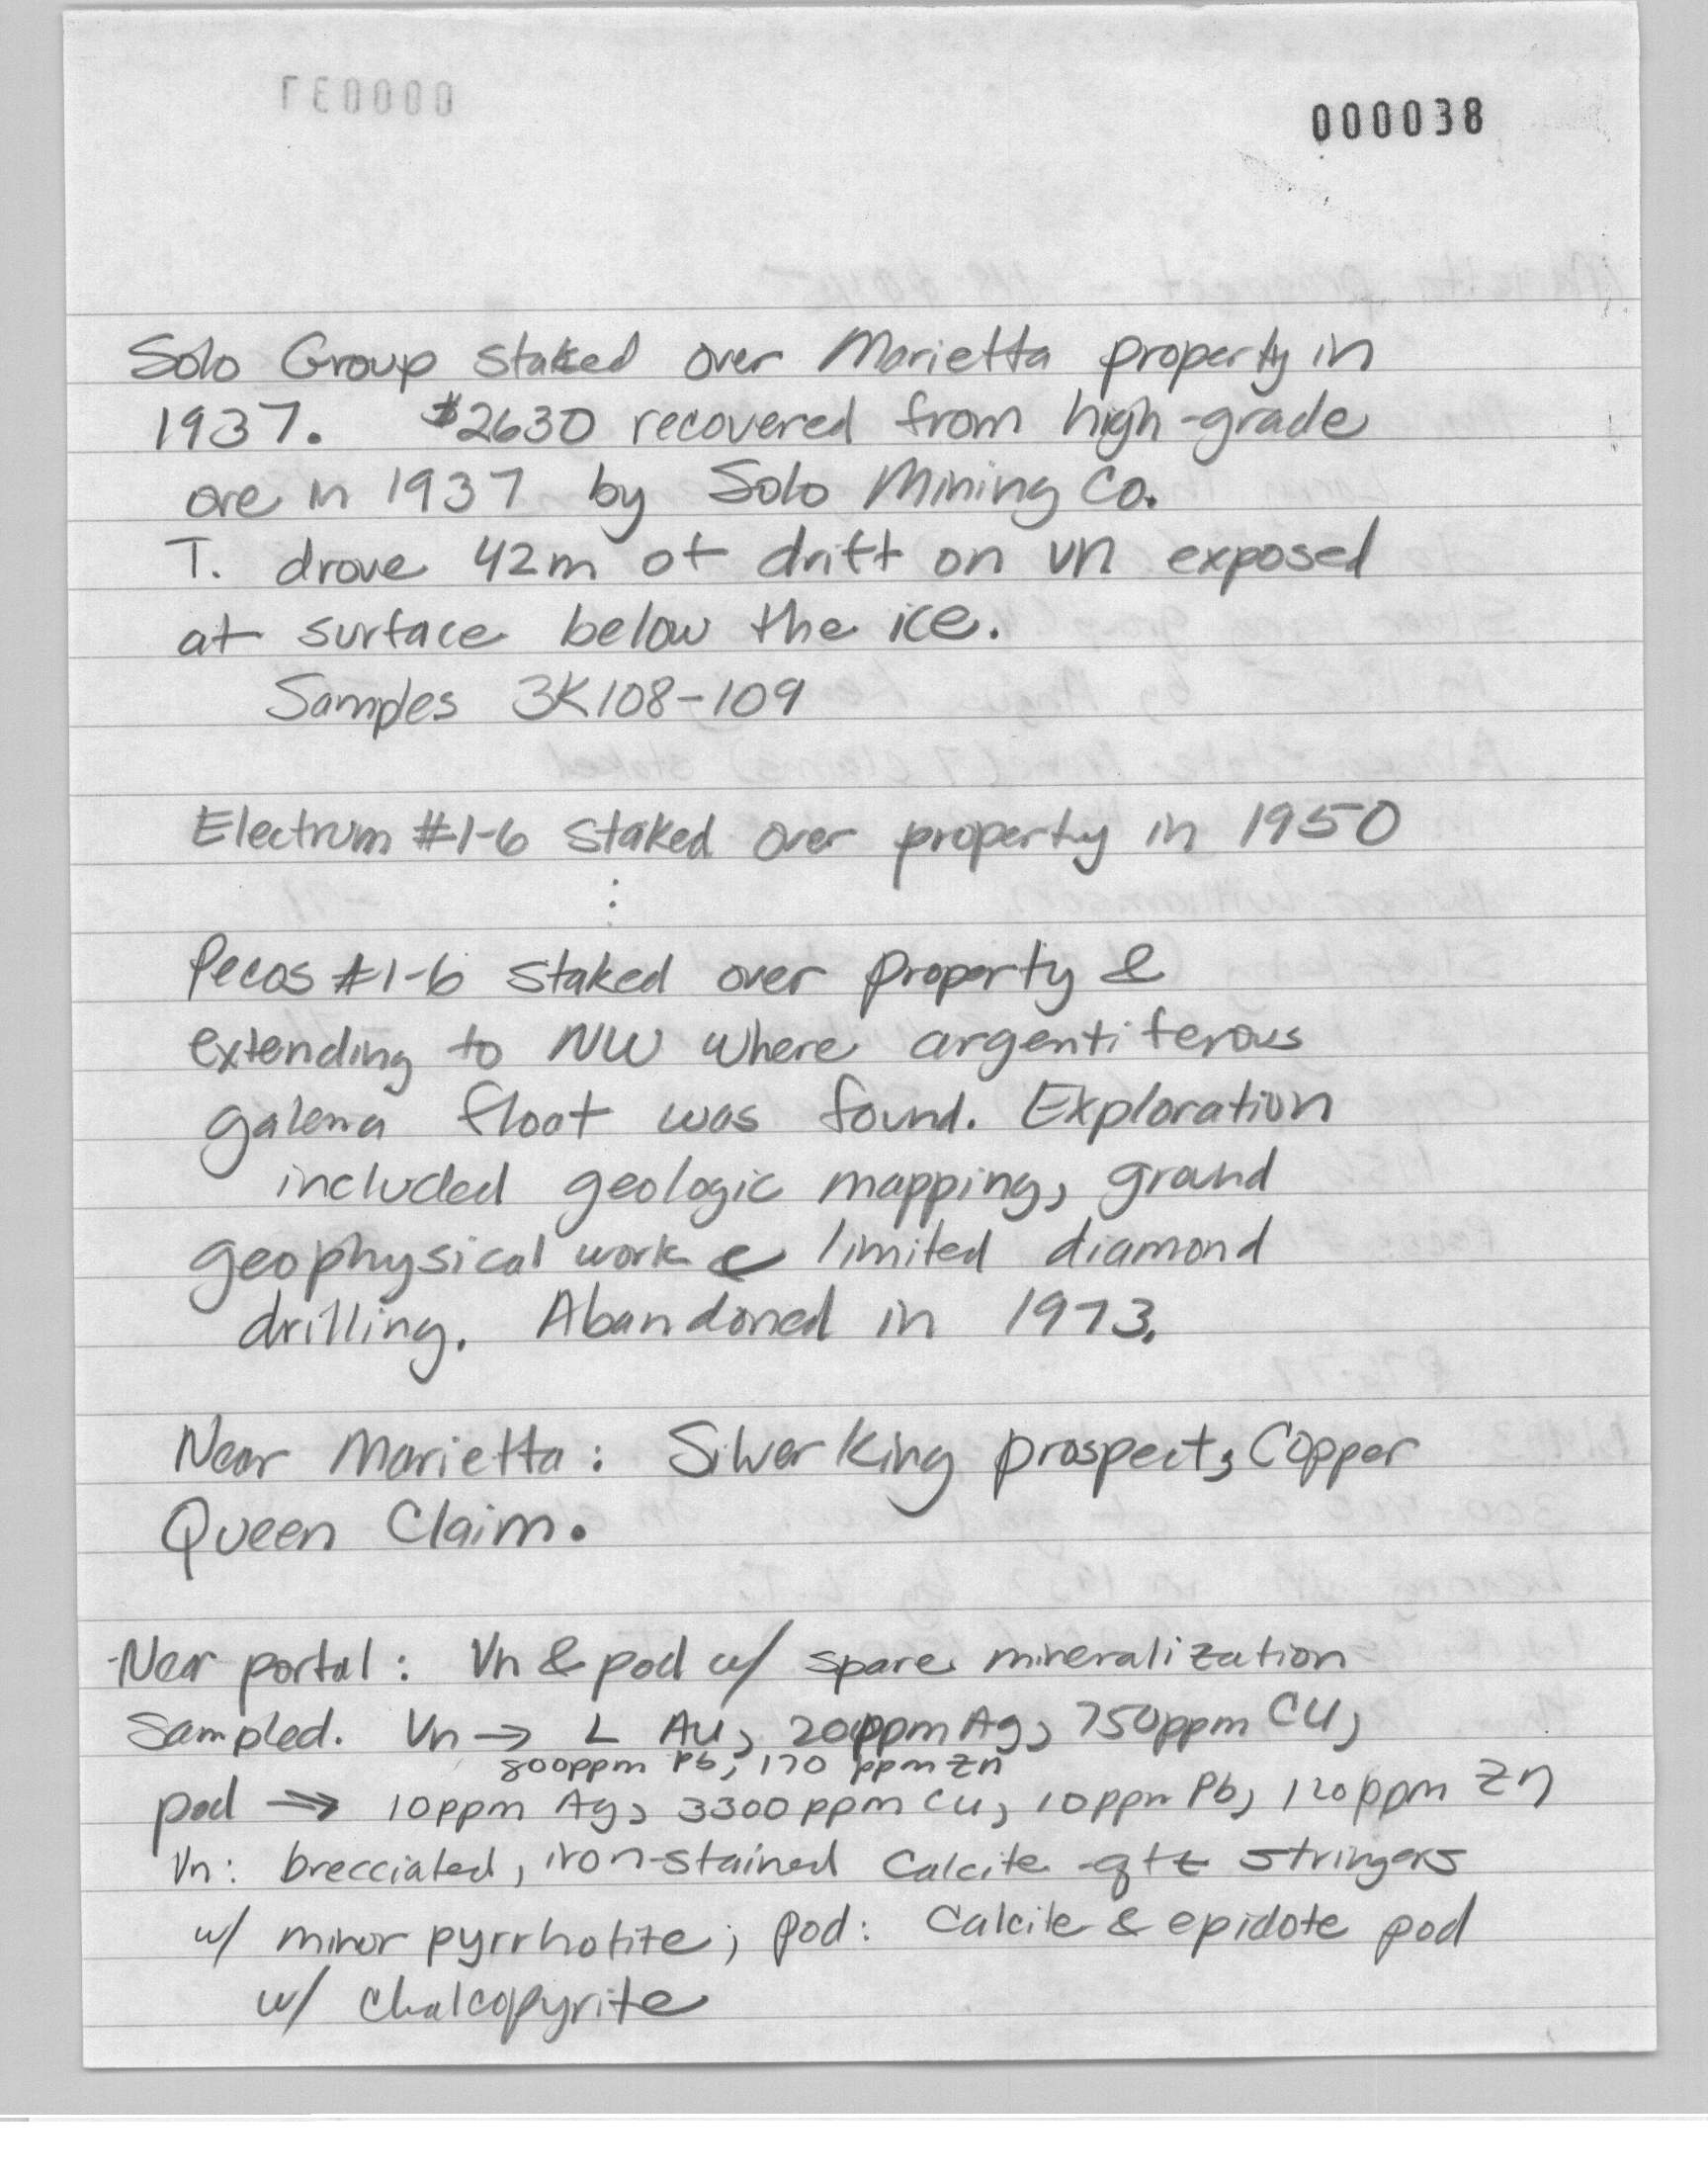 000038
Solo Group staked over Marietta property in
1937. $2630 recovered from high-grade
ore in 1937 by Solo Mining Co.
T. drove 42m of drift on vn exposed
at surface below the ice.
Samples 3K108-109
Electrum #1-6 staked over property in 1950
:
Pecos #1-6 staked over property &
extending to NW where argentiferous
galena float was found. Exploration
included geologic mapping, ground
geophysical work & limited diamond
drilling. Abandoned in 1973.
Near Marietta: Silver King prospect, Copper
Queen Claim.
-Near portal: Vn & pod w/ spare mineralization
Sampled. Vn → L Au, 20ppm Ag, 750ppm Cu,
800ppm Pb, 170 ppm Zn
pod → 10ppm Ag, 3300ppm Cu, 10ppm Pb, 120ppm Zn
Vn: brecciated, iron-stained calcite-qtz stringers
w/ minor pyrrhotite; pod: Calcite & epidote pod
w/ chalcopyrite